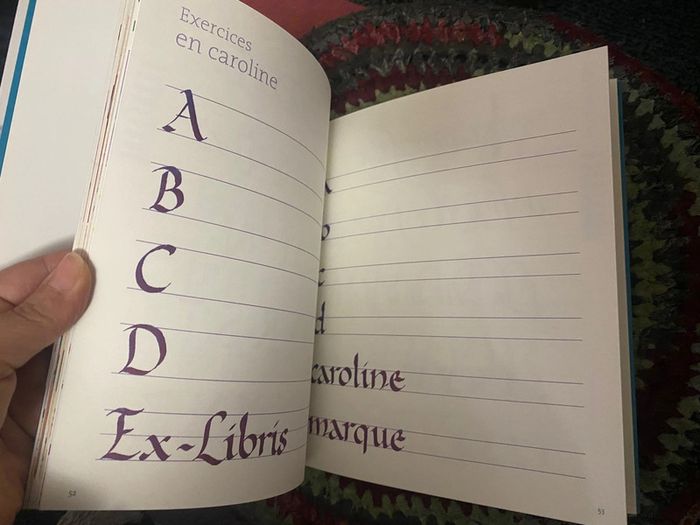 Exercices
en caroline
A
B
C
D
Ex-Libris
52
d
caroline
marque
53